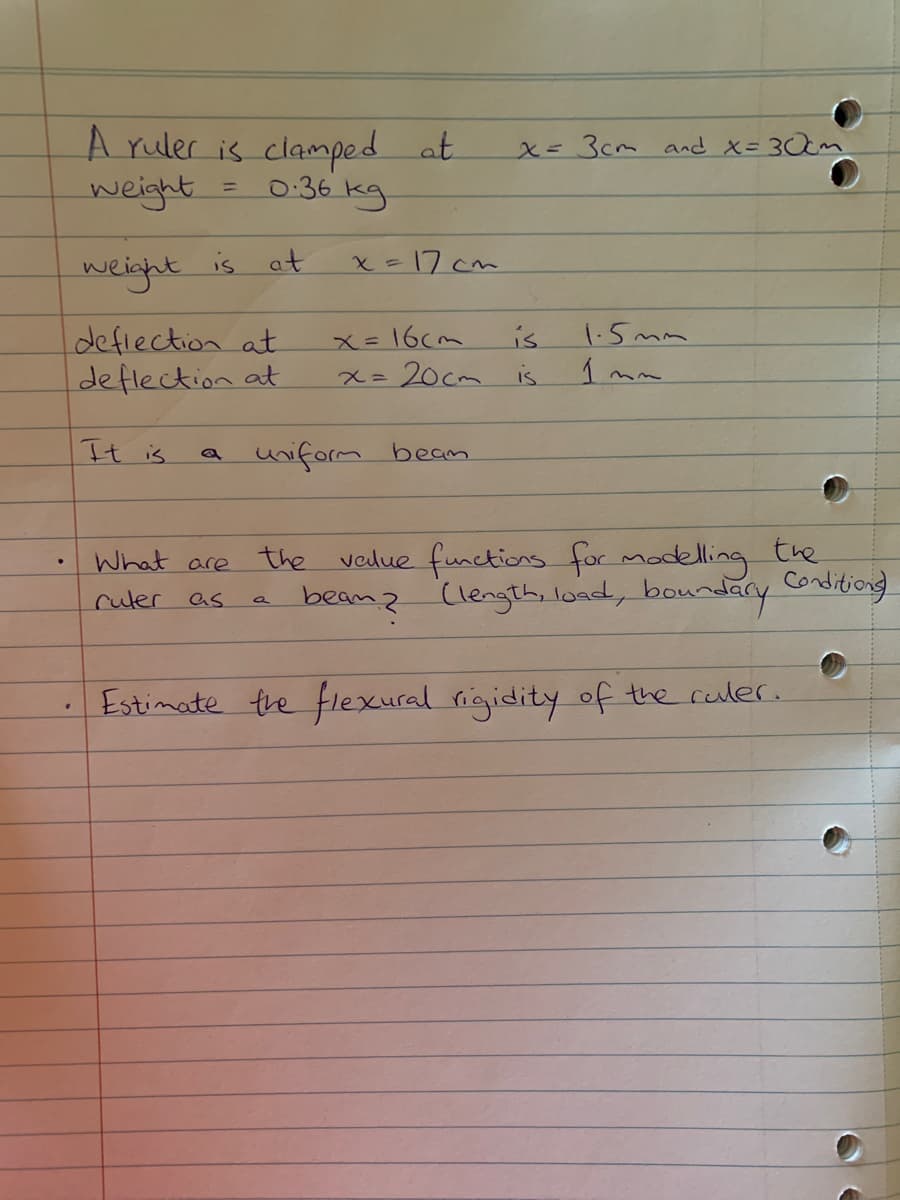 A ruler is clamped at x = 3cm and x = 30cm
weight = 0.36 kg
weight is at x = 17 cm
deflection at x = 16cm is 1.5 mm
deflection at x = 20cm is 1 mm
It is a uniform beam
· What are the value functions for modelling the
ruler as a beam? (length, load, boundary conditions)
· Estimate the flexural rigidity of the ruler.